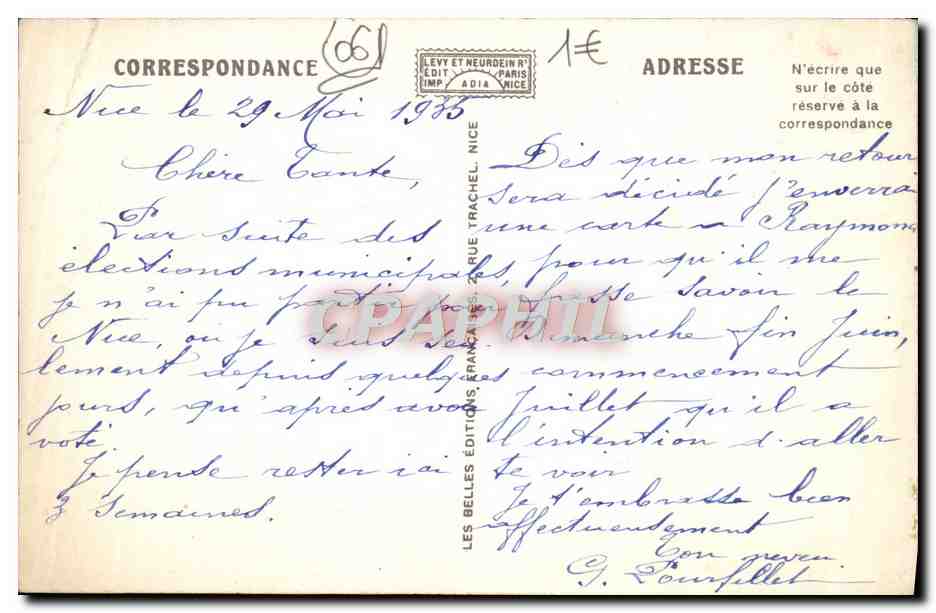 CORRESPONDANCE
06
LEVY ET NEURDEIN Rs
EDIT PARIS
IMP ADIA NICE
1€
ADRESSE
N'écrire que
sur le côté
réservé à la
correspondance
Nice le 29 Mai 1935
Chère Tante,
Par suite des
élections municipales,
je n'ai pu partir pour
Nice, où je suis seu-
lement depuis quelques
jours, qu'après avoir
voté
Je pense rester ici
3 semaines.
LES BELLES ÉDITIONS FRANÇAISES, 2, RUE TRACHEL. NICE
Dès que mon retour
sera décidé j'enverrai
une carte à Raymond
pour qu'il me
fasse savoir le
Dimanche fin Juin,
commencement
Juillet qu'il a
l'intention d'aller
te voir
Je t'embrasse bien
affectueusement
Ton neveu
G.
CPAPHIL